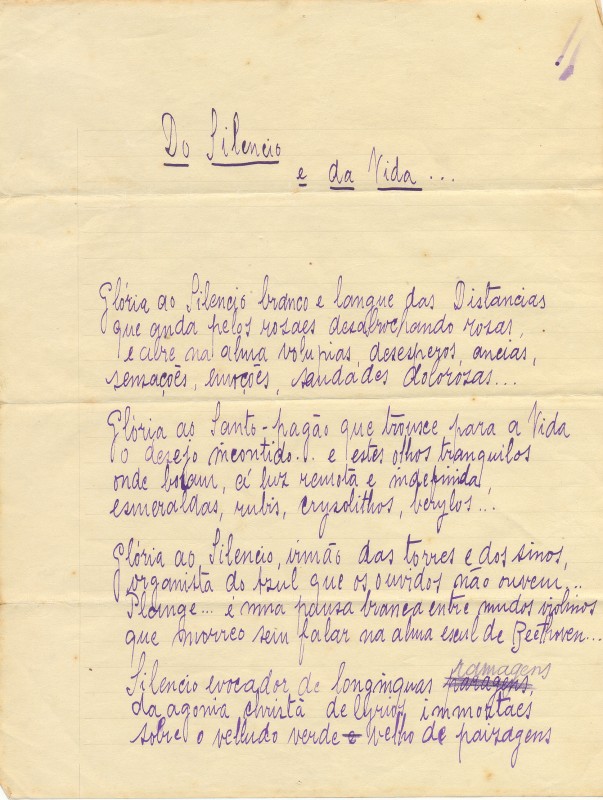 Do Silencio
e da Vida...
Glória ao Silencio branco e langue das Distancias
que anda pelos rosaes desabrochando rosas,
e abre na alma volupias, desesperos, ancias,
sensações, emoções, saudades dolorosas...
Glória ao Santo-pagão que trouxe para a Vida
o desejo incontido... e estes olhos tranquilos
onde boiam, á luz remota e indefinida,
esmeraldas, rubis, crysolithos, berylos...
Glória ao Silencio, irmão das torres e dos sinos,
organista do Azul que os ouvidos não ouvem...
Plange... é uma pausa branca entre mudos violinos
que morreo sem falar na alma de Beethoven...
ramagens
Silencio evocador de longinquas paragens
da agonia christã de lyrios immortaes
sobre o velludo verde e velho de paizagens